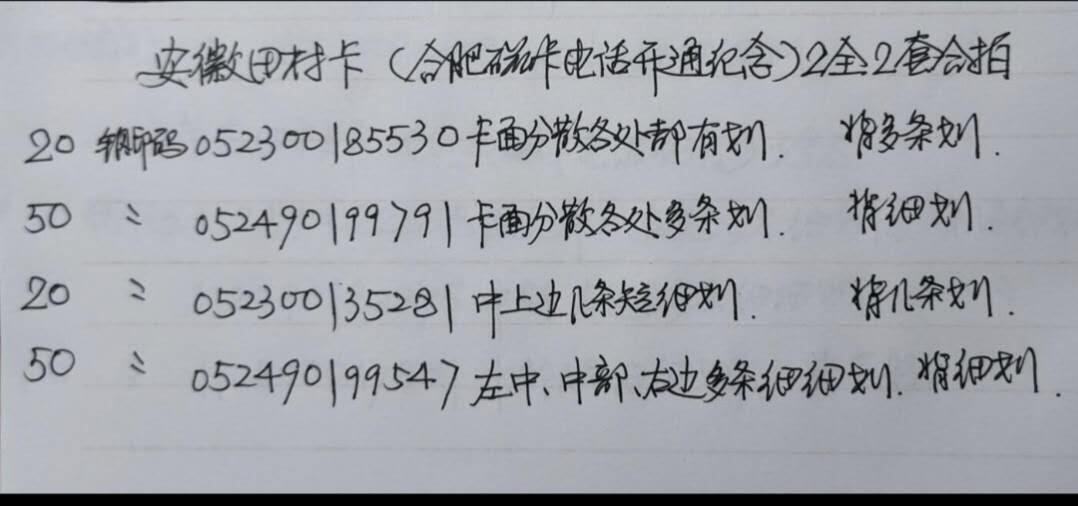 安徽田村卡（合肥磁卡电话开通纪念）2全2套合拍
20 钢印码052300185530卡面分散各处都有划. 背多条划.
50 〃 052490199791卡面分散各处多条划. 背细划.
20 〃 052300135281中上边几条短细划. 背几条划.
50 〃 052490199547左中、中部、右边多条细细划. 背细划.